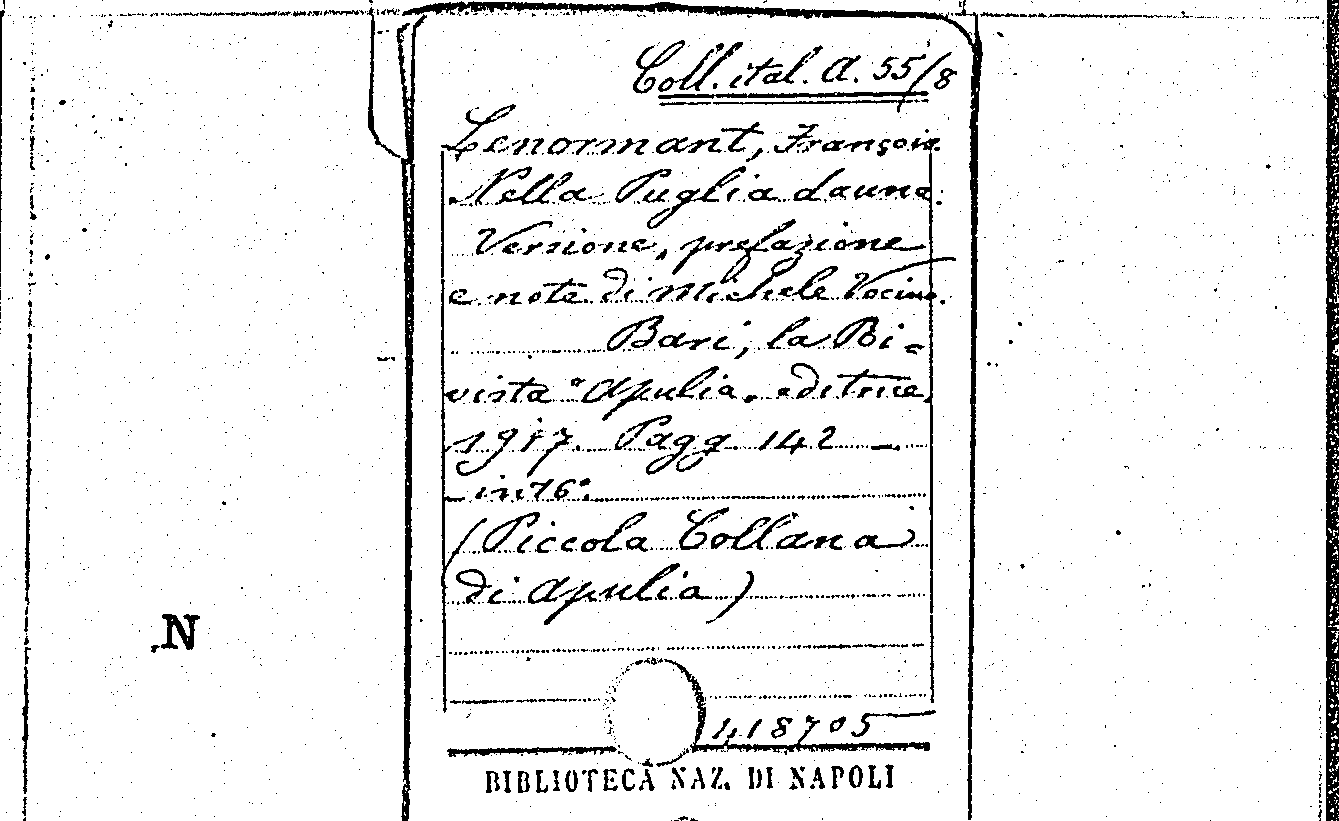 Coll. ital. A. 55/8
Lenormant, François
Nella Puglia dauna.
Versione, prefazione
e note di Michele Vocino.
Bari, la Ri-
vista "Apulia" editrice,
1917. Pagg. 142 —
— in 16°.
(Piccola Collana
di Apulia)
N
418705
BIBLIOTECA NAZ. DI NAPOLI